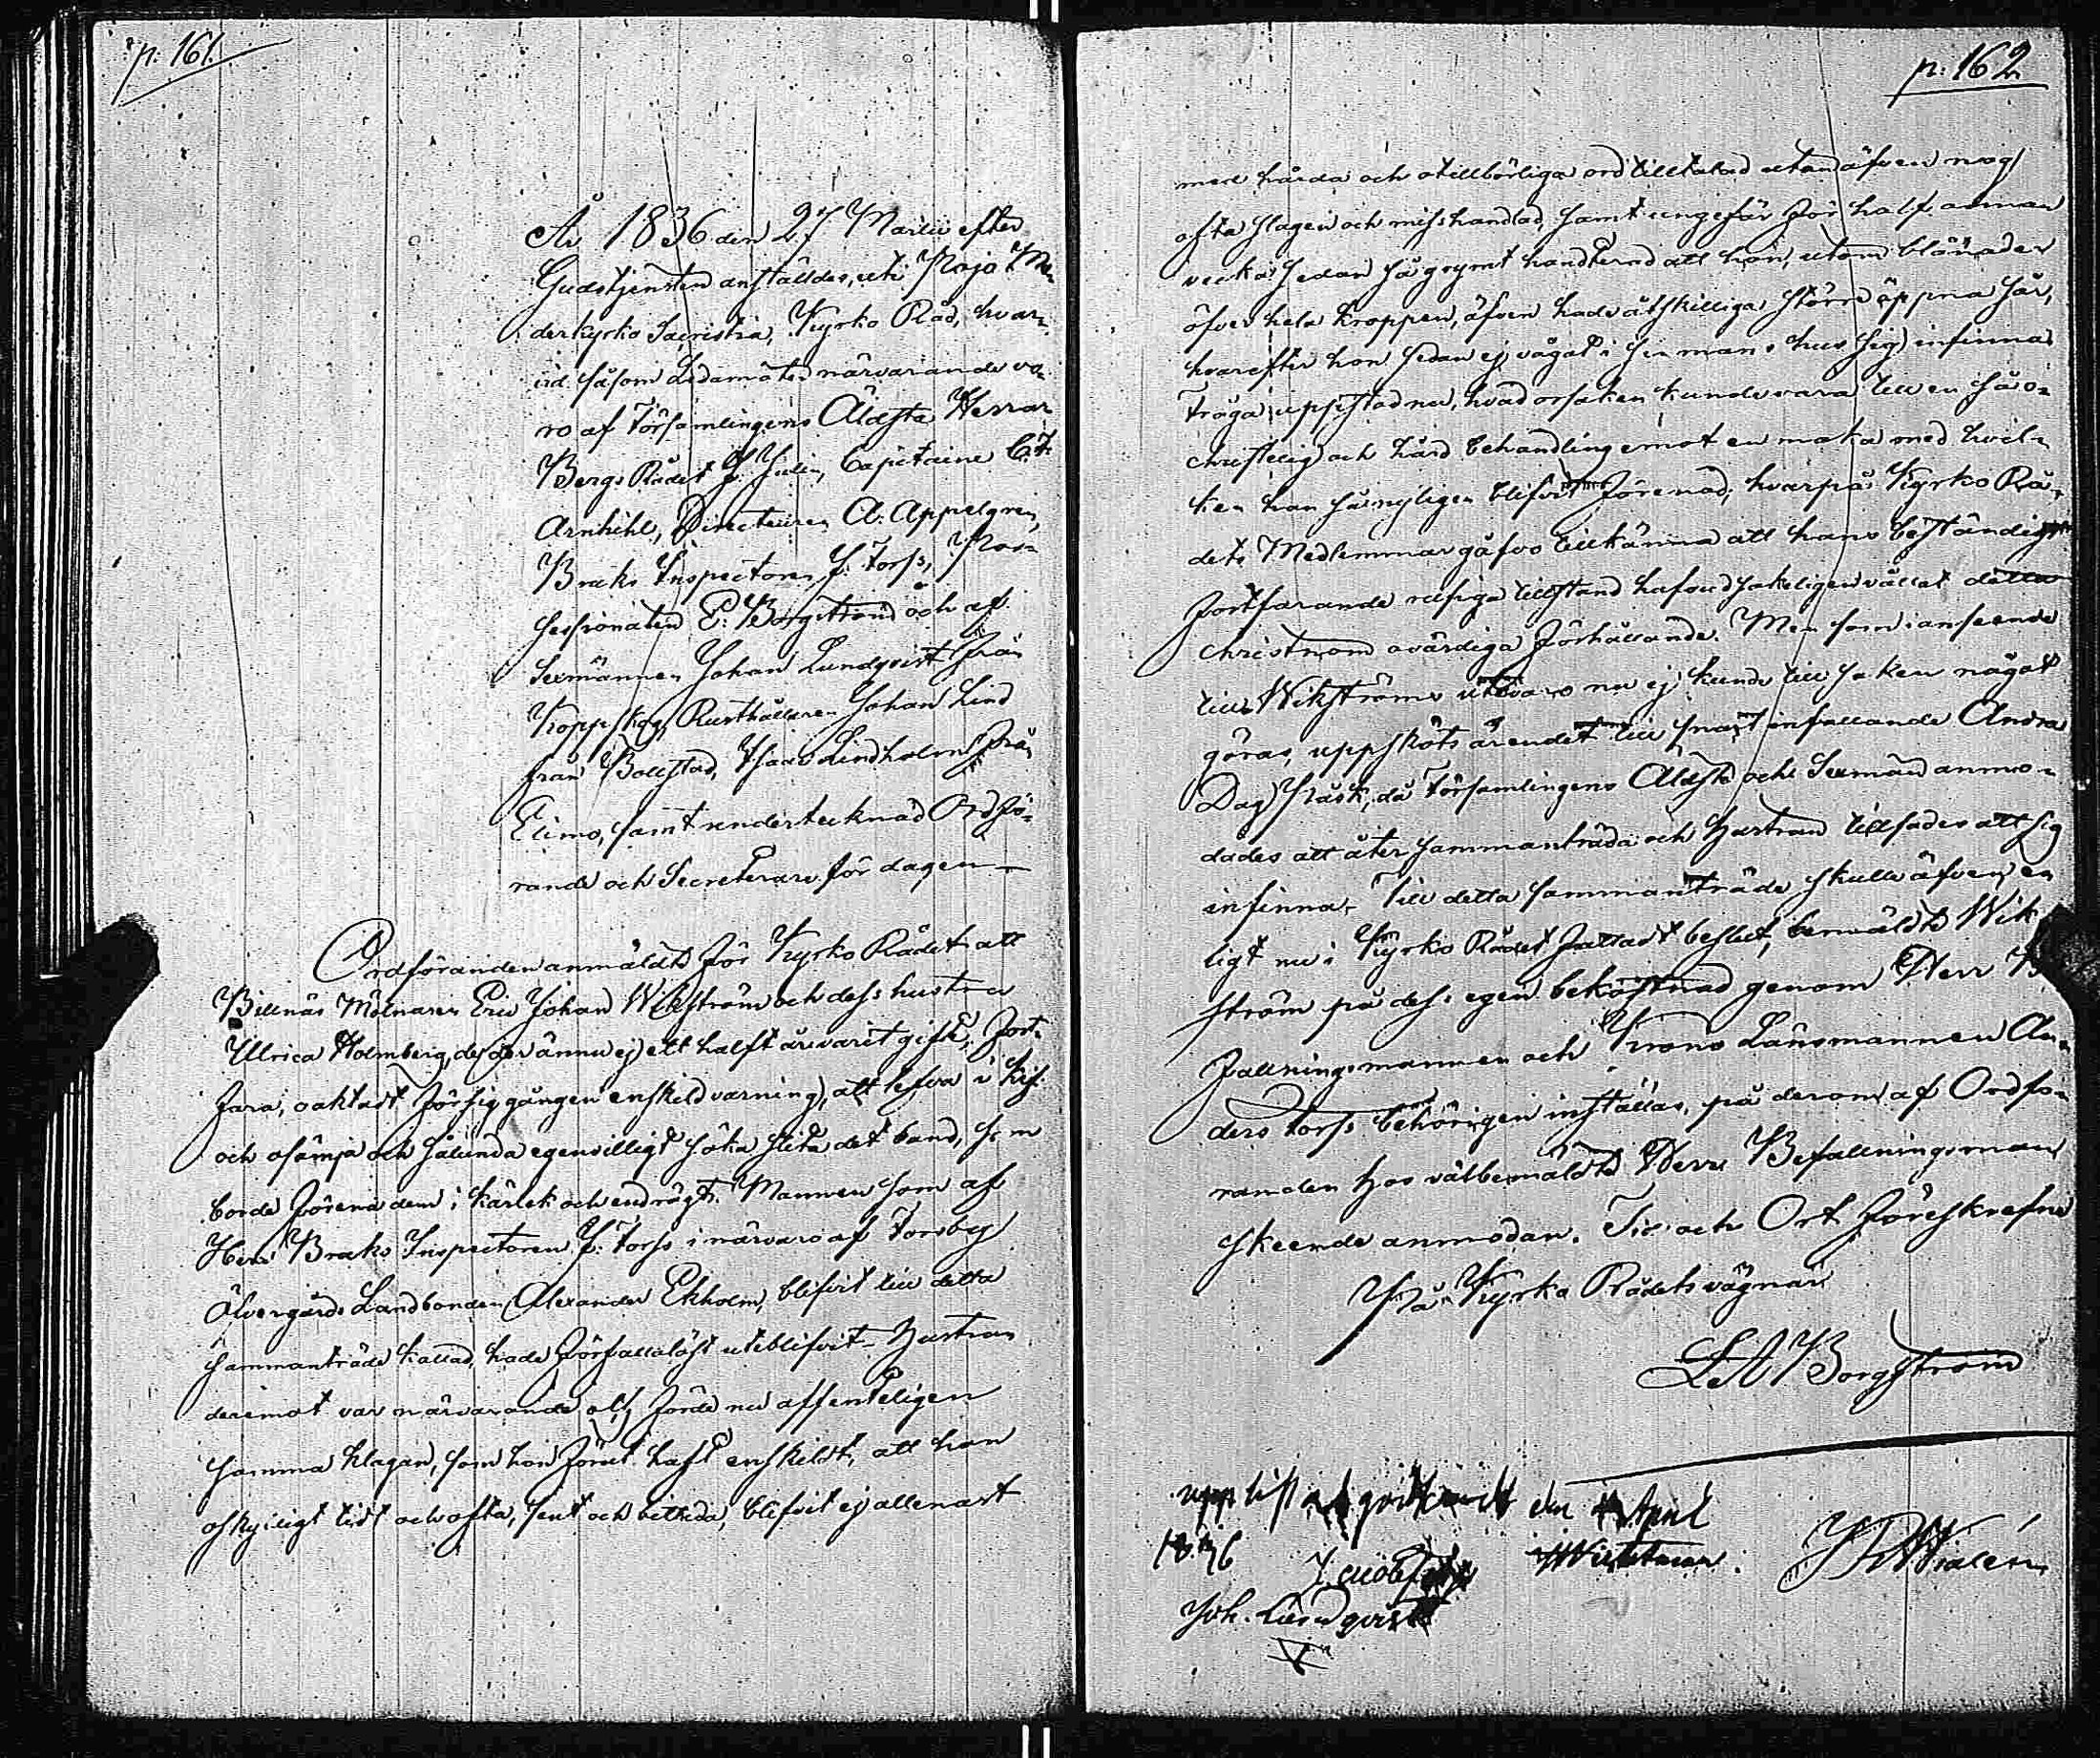 p. 161.
År 1836 den 27 Martii efter
Gudstjensten anställdes, uti Pojo Mo-
derkyrko Sacristia, Kyrko Råd, hvar-
vid såsom Ledamöter närvarande vo-
ro af Församlingens Äldsta Herrar
Bergs Rådet J. Julin, Capitaine C. F.
Arnkihl, Directeuren A. Appelgren,
Bruks Inspectoren J. Forss, Pos-
sessionaten E. Borgström och af
Sexmännen Johan Lundqvist från
Koppskog, Rusthållaren Johan Lind
från Bollstad, Isaac Lindholm från
Elimo, samt undertecknad Ordfö-
rande och Secreterare för dagen –
Ordföranden anmäldte för Kyrko Rådet att
Billnäs Mölnaren Eric Johan Wikström och dess hustru
Ulrica Holmberg, de der ännu ej ett halft år varit gifte, fort-
fara, oaktadt försiggången enskild varning, att lefva i kif
och osämja och sålunda egenvilligt söka slita det band, som
borde förena dem i kärlek och endrägt. Mannen som af
Herr Bruks Inspectoren J. Forss i närvaro af Forsby
Öfvergårds Landbonden Alexander Ekholm, blifvit till detta
sammanträde kallad, hade förfallolöst uteblifvit – Hustrun
deremot var närvarande och förde nu offenteligen
samma klagan, som hon förut haft enskildt, att hon
oskyiligt tidt och ofta, sent och bittida, blifvit ej allenast
p. 162
med hårda och otillbörliga ord tilltalad utan äfven nog
ofta slagen och misshandlad, samt ungefär för half annan
vecka sedan så grymt handterad att hon, utom blånader
öfver hela kroppen, äfven hade åtskilliga större öppna sår,
hvarefter hon sedan ej vågat i sin mans hus sig infinna.
Fråga uppstod nu, hvad orsaken kunde vara till en så o-
christelig och hård behandling emot en maka med hvil-
ken han så nyligen blifvit förenad; hvarpå Kyrko Rå-
dets Medlemmar gåfvo tillkänna att hans beständigt
fortfarande rusiga tillstånd hufvudsakeligen vållat detta
christnom ovärdiga förhållande. Men som i anseende
till Wikströms utevaro nu ej kunde till saken något
göras, uppsköts ärendet till snart infallande Andra
Dag Påsk, då Församlingens Äldsta och Sexmän anmo-
dades att åter sammanträda och hustrun tillsades att sig
infinna. Till detta sammanträde skulle äfven en
ligt nu i Kyrko Rådet fattadt beslut, bemäldte Wik-
ström på dess egen bekostnad genom Herr
fallningsmannen och Krono Länsmannen
ders Forss behörigen inställas, på derom af Ordfö-
randen hos välbemäldte Herr Befallningsman
skeende anmodan. Tid och Ort föreskrefne
På Kyrko Rådets vägnar
L A Borgström
upp läst och godkändt den April
1836
Joh. Lundqvist